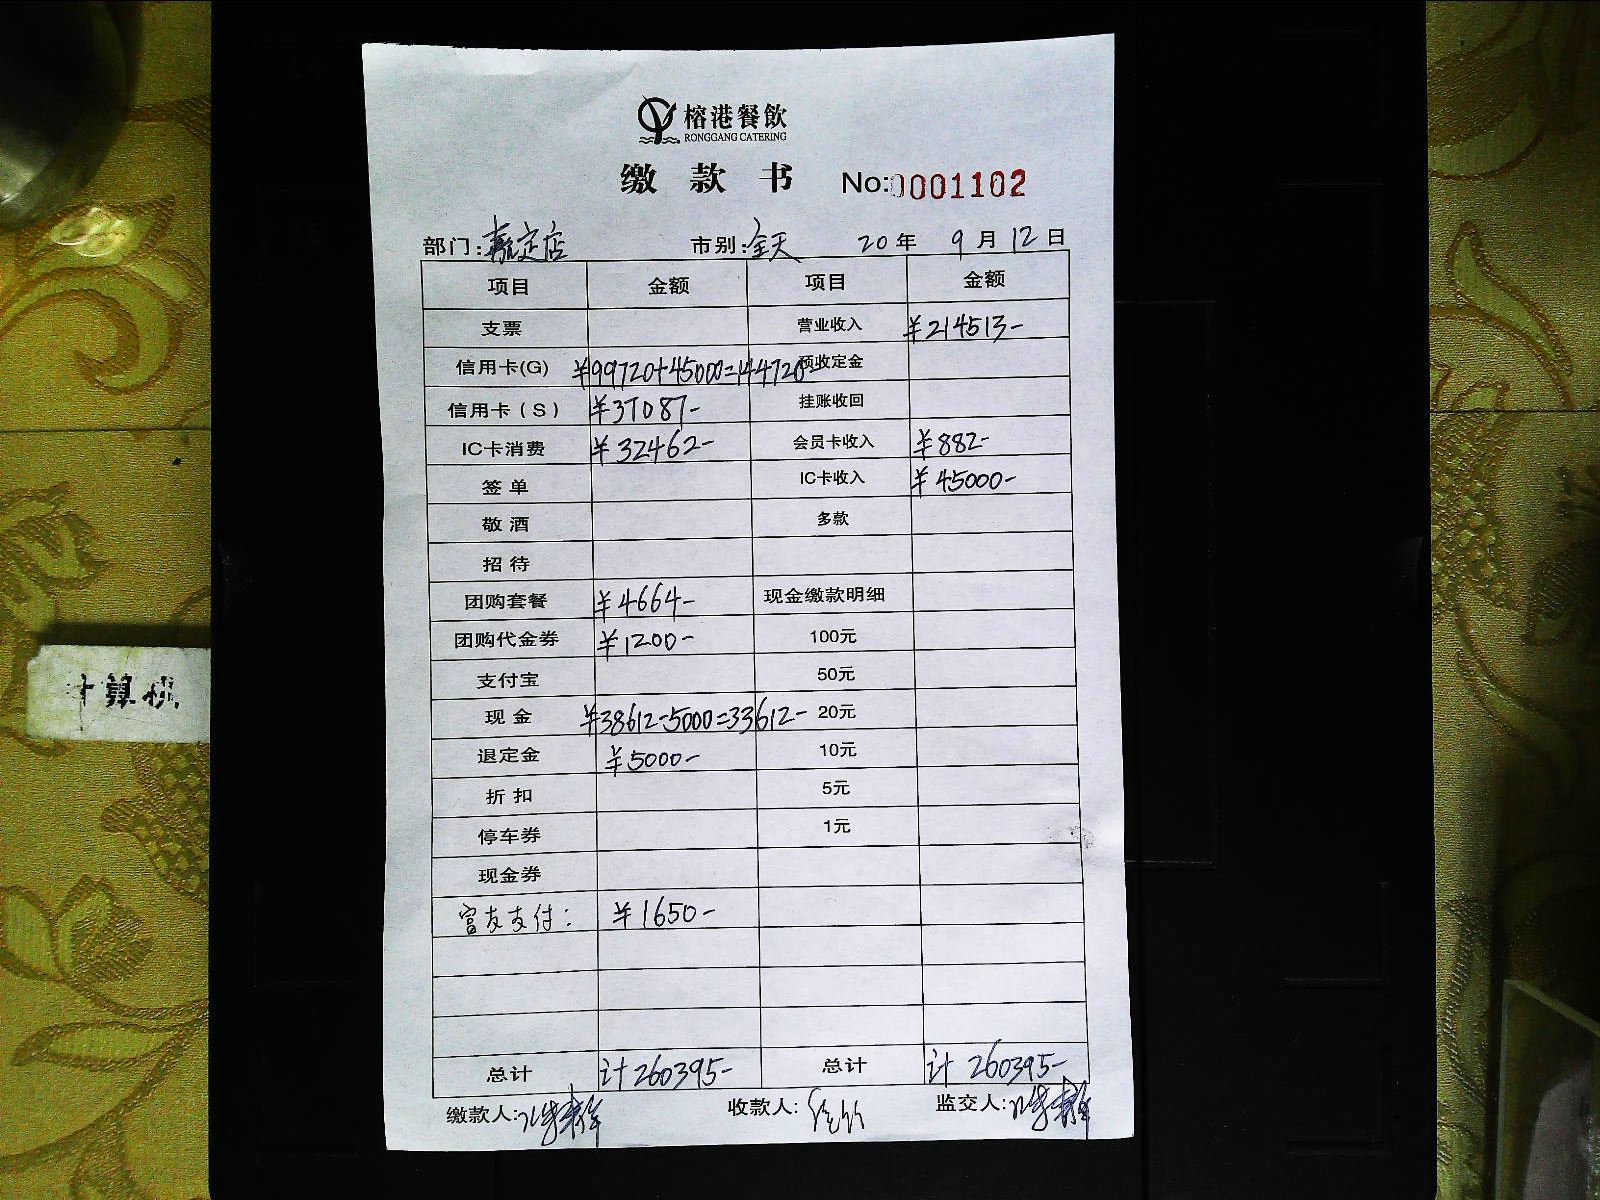 榕港餐飲
RONGGANG CATERING
缴款书 No:0001102
部门:嘉定店 市别:全天 20年 9月12日
项目 金额 项目 金额
支票 营业收入 ¥214513-
信用卡(G) ¥99720+45000=144720- 预收定金
信用卡(S) ¥37087- 挂账收回
IC卡消费 ¥32462- 会员卡收入 ¥882-
签单 IC卡收入 ¥45000-
敬酒 多款
招待
团购套餐 ¥4664- 现金缴款明细
团购代金券 ¥1200- 100元
支付宝 50元
现金 ¥38612-5000=33612- 20元
退定金 ¥5000- 10元
折扣 5元
停车券 1元
现金券
富友支付: ¥1650-
总计 计260395- 总计 计260395-
缴款人: 收款人: 监交人:
计算机